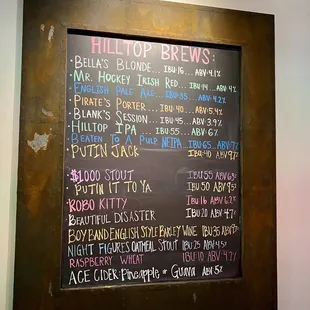 HILLTOP BREWS:
· BELLA'S BLONDE... IBU·16... ABV·4.1%
· MR. HOCKEY IRISH RED... IBU·14... ABV·4%
· ENGLISH PALE ALE... IBU·35... ABV·4.2%
· PIRATE'S PORTER... IBU·40... ABV·5.4%
· BLANK'S SESSION... IBU·45... ABV·3.9%
· HILLTOP IPA... IBU·55... ABV·6%
· BEATEN TO A PULP NEIPA... IBU·65... ABV·7%
· PUTIN JACK IBU·40 ABV 9%
· $1000 STOUT IBU·55 ABV
· PUTIN IT TO YA IBU 50 ABV 9.5
· ROBO KITTY IBU 16 ABV 6.2
· BEAUTIFUL DISASTER IBU 20 ABV 4.7
BOY BAND ENGLISH STYLE BARLEY WINE IBU 35 ABV
NIGHT FIGURES OATMEAL STOUT IBU 25 ABV 4.5
RASPBERRY WHEAT IBU 10 ABV 4.2%
ACE CIDER: PINEAPPLE OR GUAVA ABV 5%